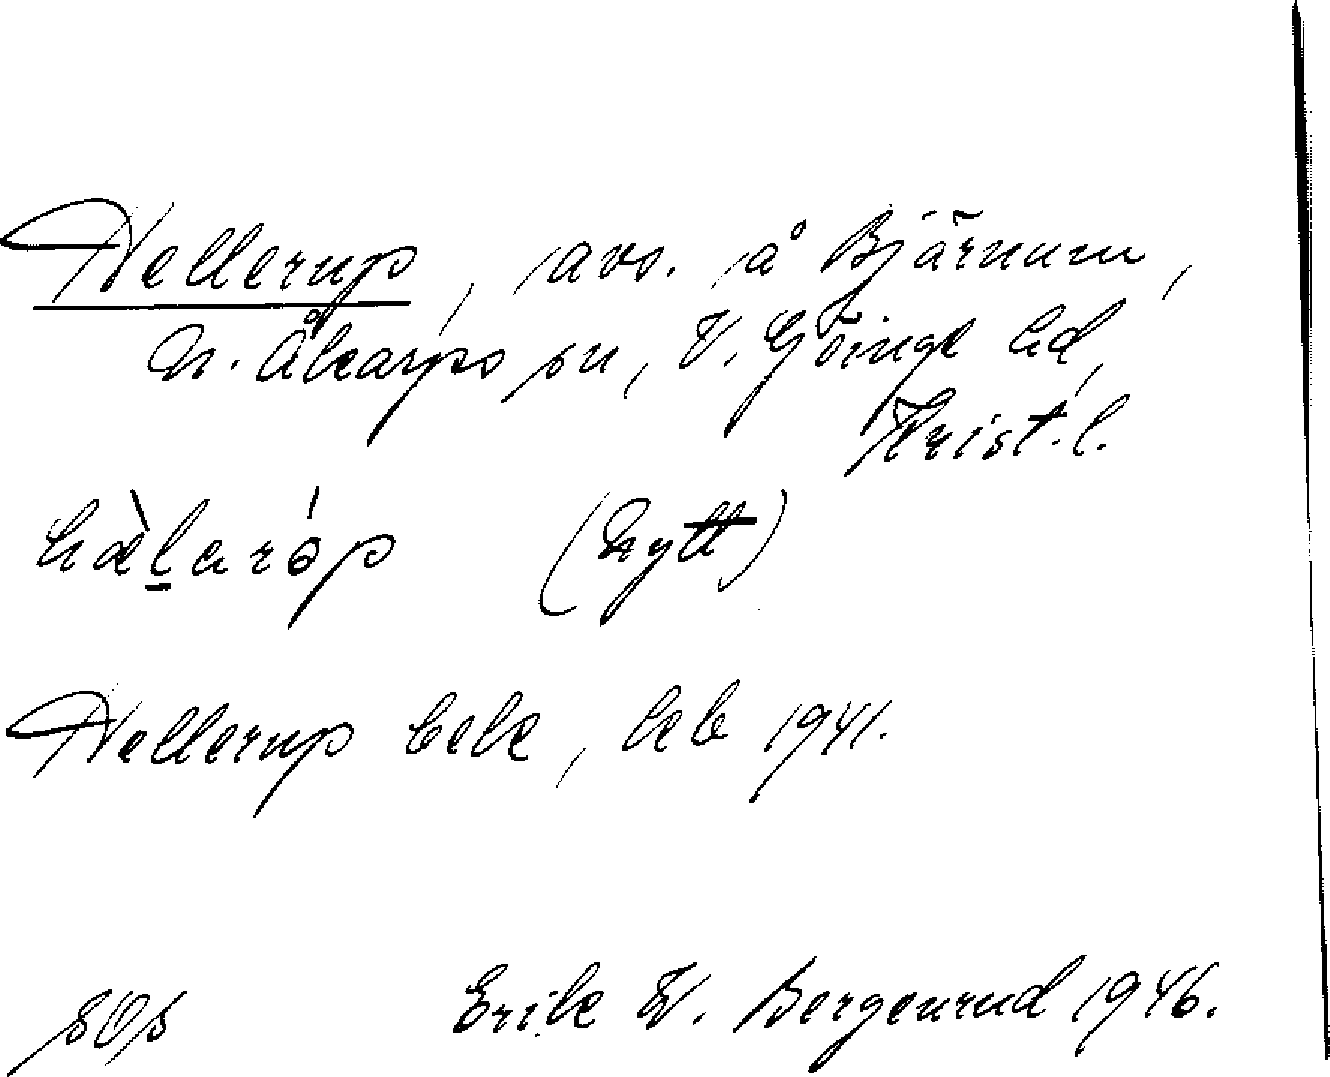 Hellerup, avs. å Bjärnum,
N. Åkarps sn, V. Göinge hd,
Krist. l.
hæ̀laróp (Nytt)
Hellerup bebe, heb 1941.
sOs Erik W. Bergenrud 1946.